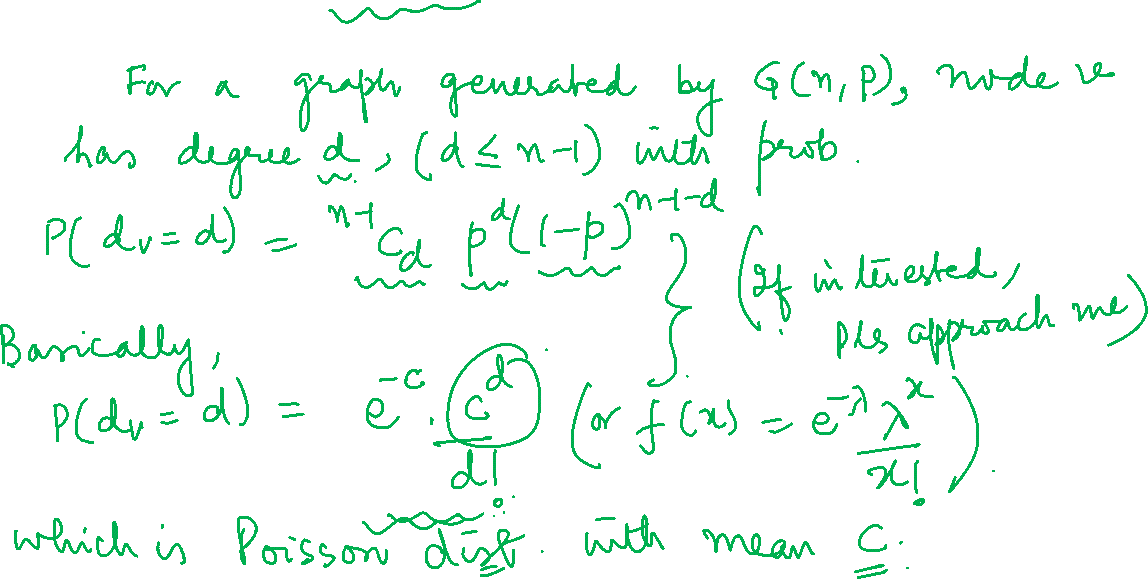 For a graph generated by G(n, p), node v
has degree d, (d ≤ n-1) with prob.
P(d_v = d) = ^{n-1}C_d p^d (1-p)^{n-1-d}
(If interested,
pls approach me)
Basically,
P(d_v = d) = e^{-c} . c^d / d! (or f(x) = e^{-λ} λ^x / x!).
which is Poisson dist. with mean c.